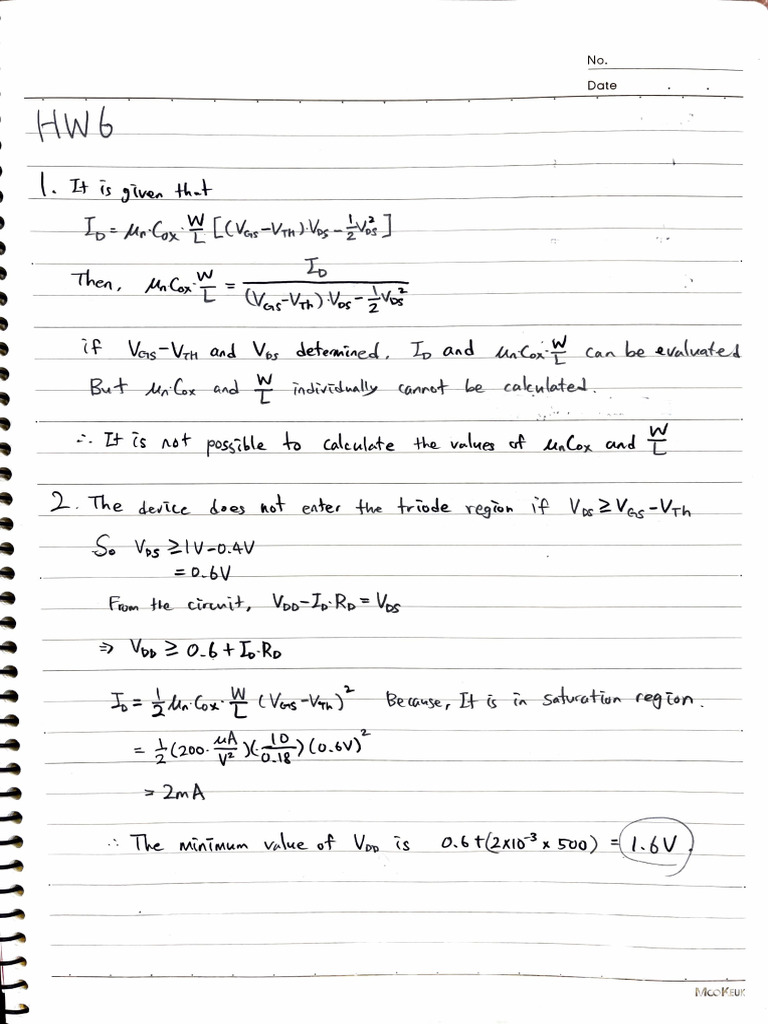 No.
Date . .
HW6
1. It is given that
I_D = μn·Cox·W/L [(VGS-VTH)·VDS - 1/2 VDS²]
Then, μnCox·W/L = I_D / ((VGS-VTh)·VDS - 1/2 VDS²)
if VGS-VTH and VDS determined, ID and μnCox·W/L can be evaluated
But μn·Cox and W/L individually cannot be calculated.
∴ It is not possible to calculate the values of μnCox and W/L
2. The device does not enter the triode region if VDS ≥ VGS-VTh
So VDS ≥ 1V-0.4V
= 0.6V
From the circuit, VDD-ID·RD = VDS
⇒ VDD ≥ 0.6 + ID·RD
ID = 1/2 μn·Cox·W/L (VGS-VTh)² Because, It is in saturation region.
= 1/2 (200·μA/V²)(10/0.18)(0.6V)²
= 2mA
∴ The minimum value of VDD is 0.6+(2×10⁻³×500) = 1.6V.
MooKeuk